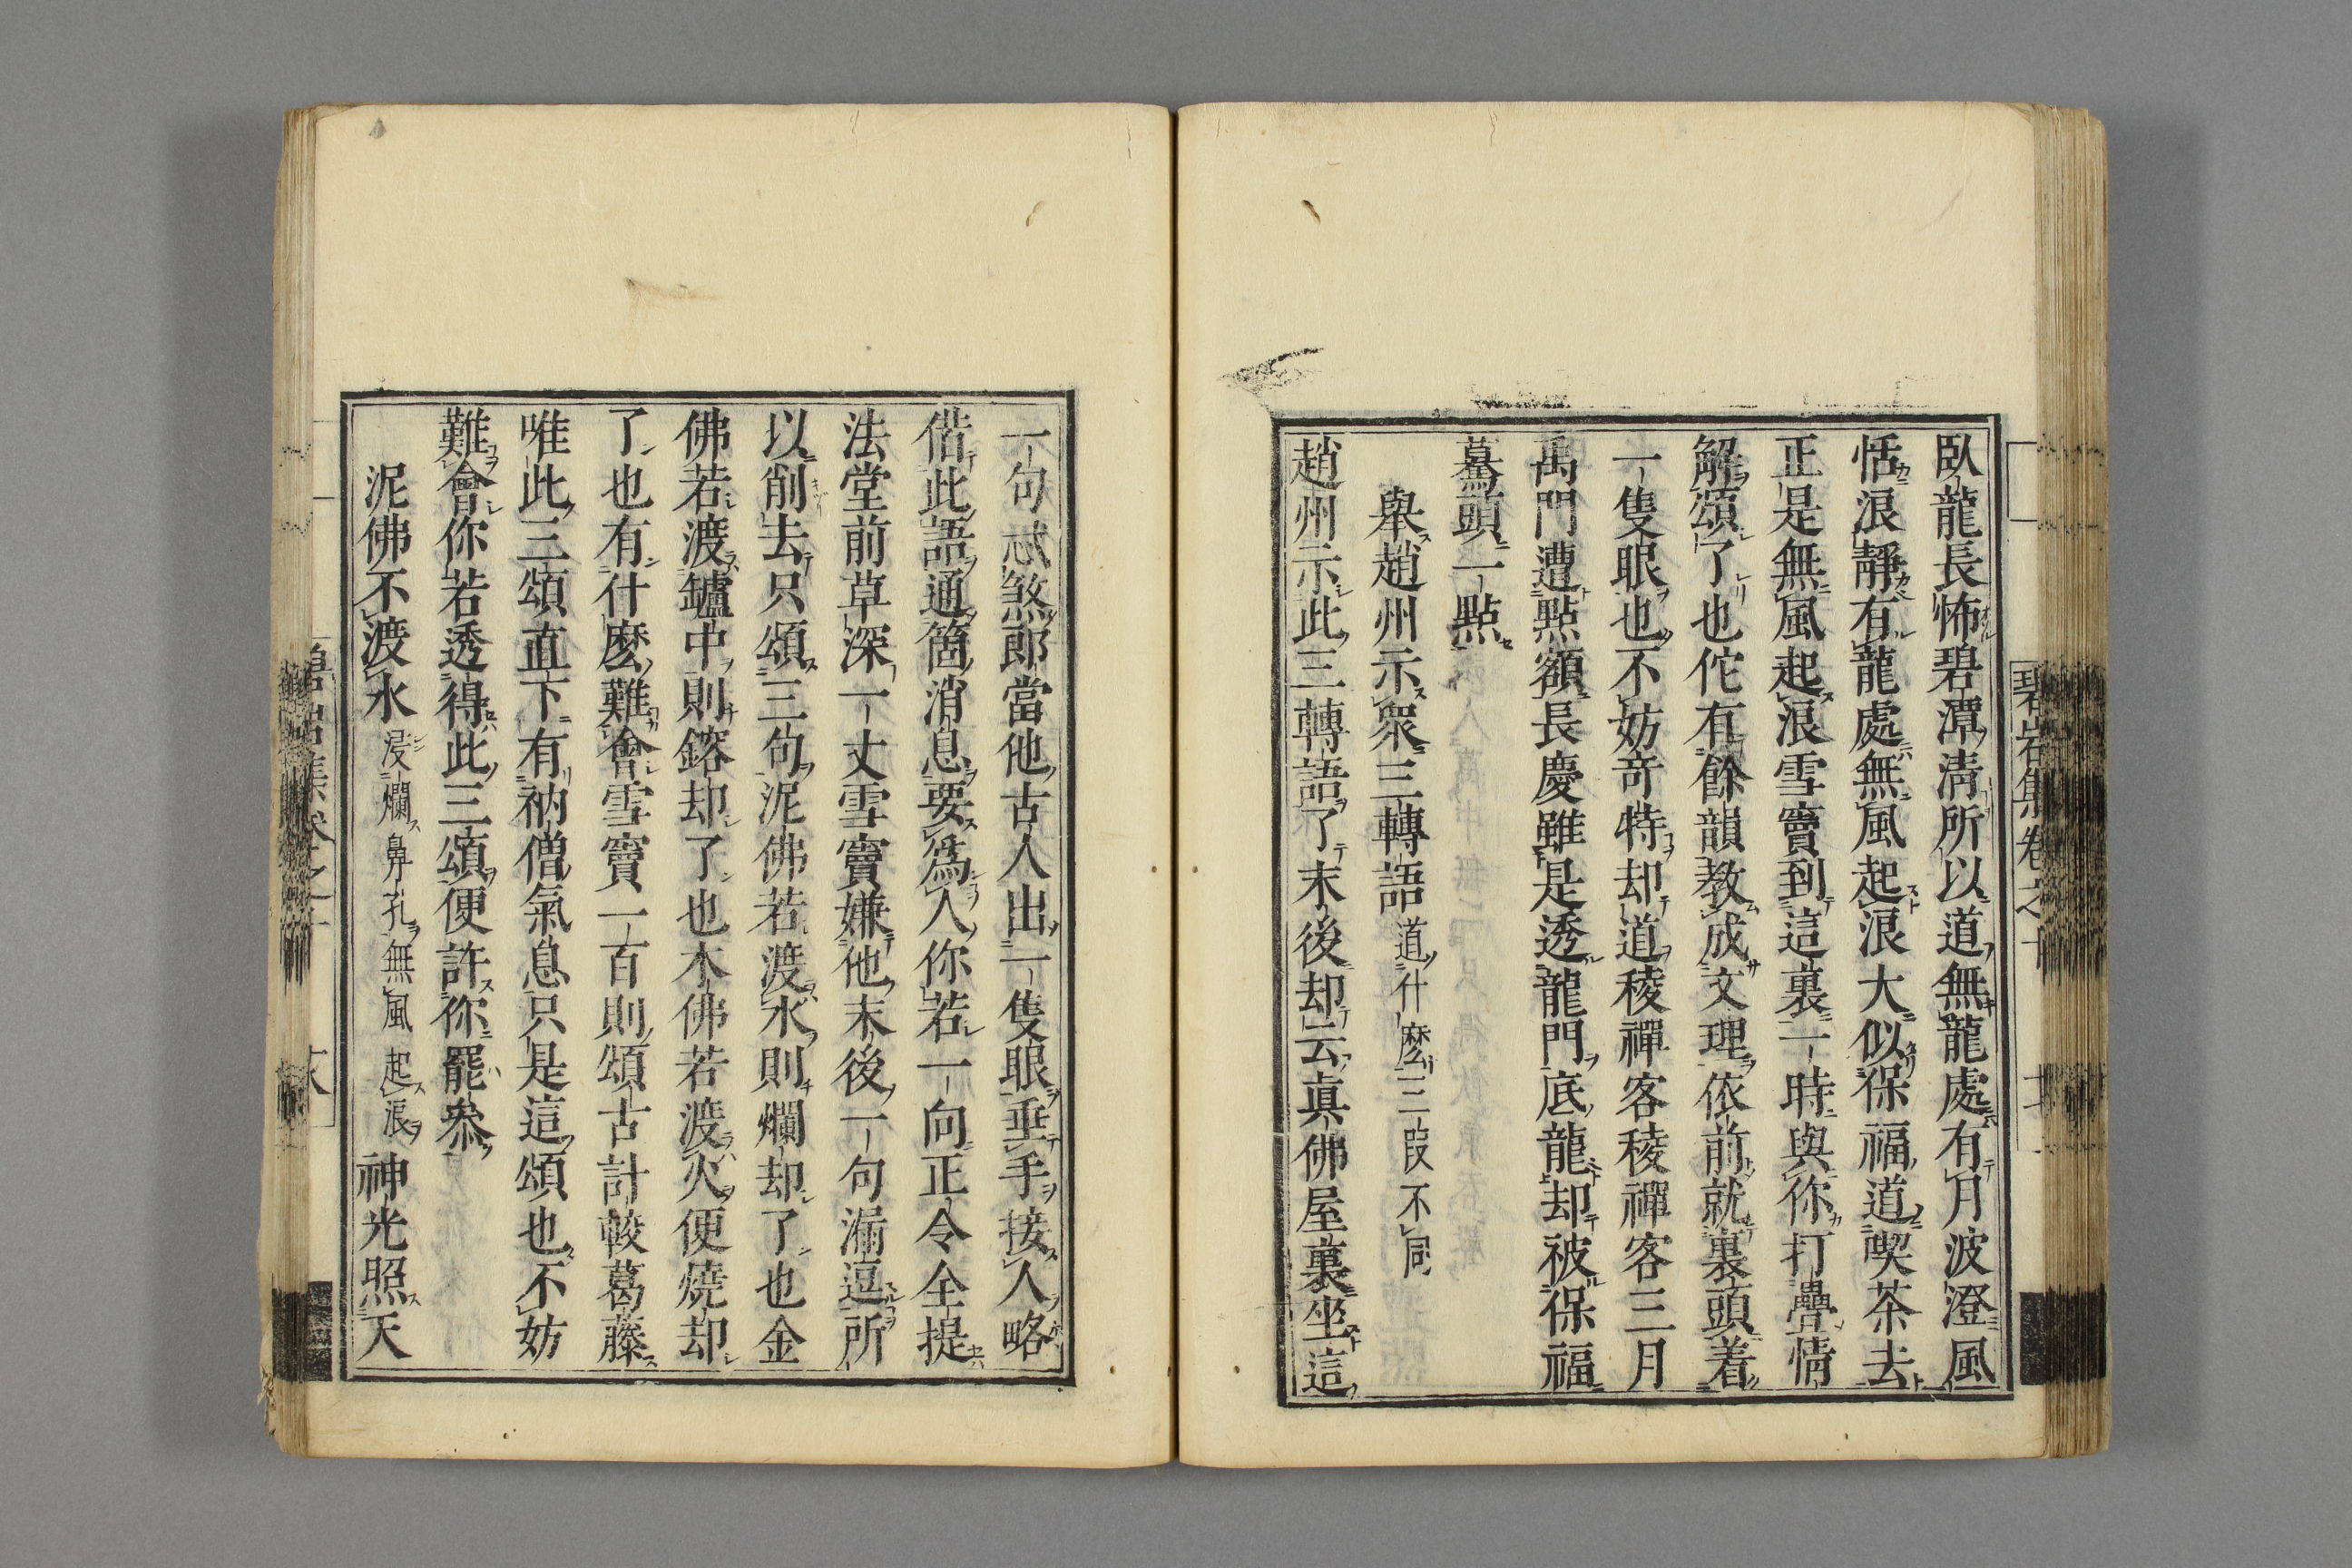 臥龍長怖碧潭淸所以道無龍處有月波澄風
恬浪靜有龍處無風起浪大似保福道喫茶去
正是無風起浪雪竇到這裏一時與你打疊情
解頌了也佗有餘韻教成文理依前就裏頭着
一隻眼也不妨奇特却道稜禪客稜禪客三月
禹門遭點額長慶雖是透龍門底龍却被保福
驀頭一點
舉趙州示衆三轉語道什麼三段不同
趙州示此三轉語了末後却云眞佛屋裏坐這
一句忒煞郎當他古人出一隻眼垂手接人略
借此語通箇消息要爲人你若一向正令全提
法堂前草深一丈雪竇嫌他末後一句漏逗所
以削去只頌三句泥佛若渡水則爛却了也金
佛若渡鑪中則鎔却了也木佛若渡火便燒却
了也有什麼難會雪竇一百則頌古計較葛藤
唯此三頌直下有衲僧氣息只是這頌也不妨
難會你若透得此三頌便許你罷參
泥佛不渡水浸爛鼻孔無風起浪神光照天
碧岩集卷之十